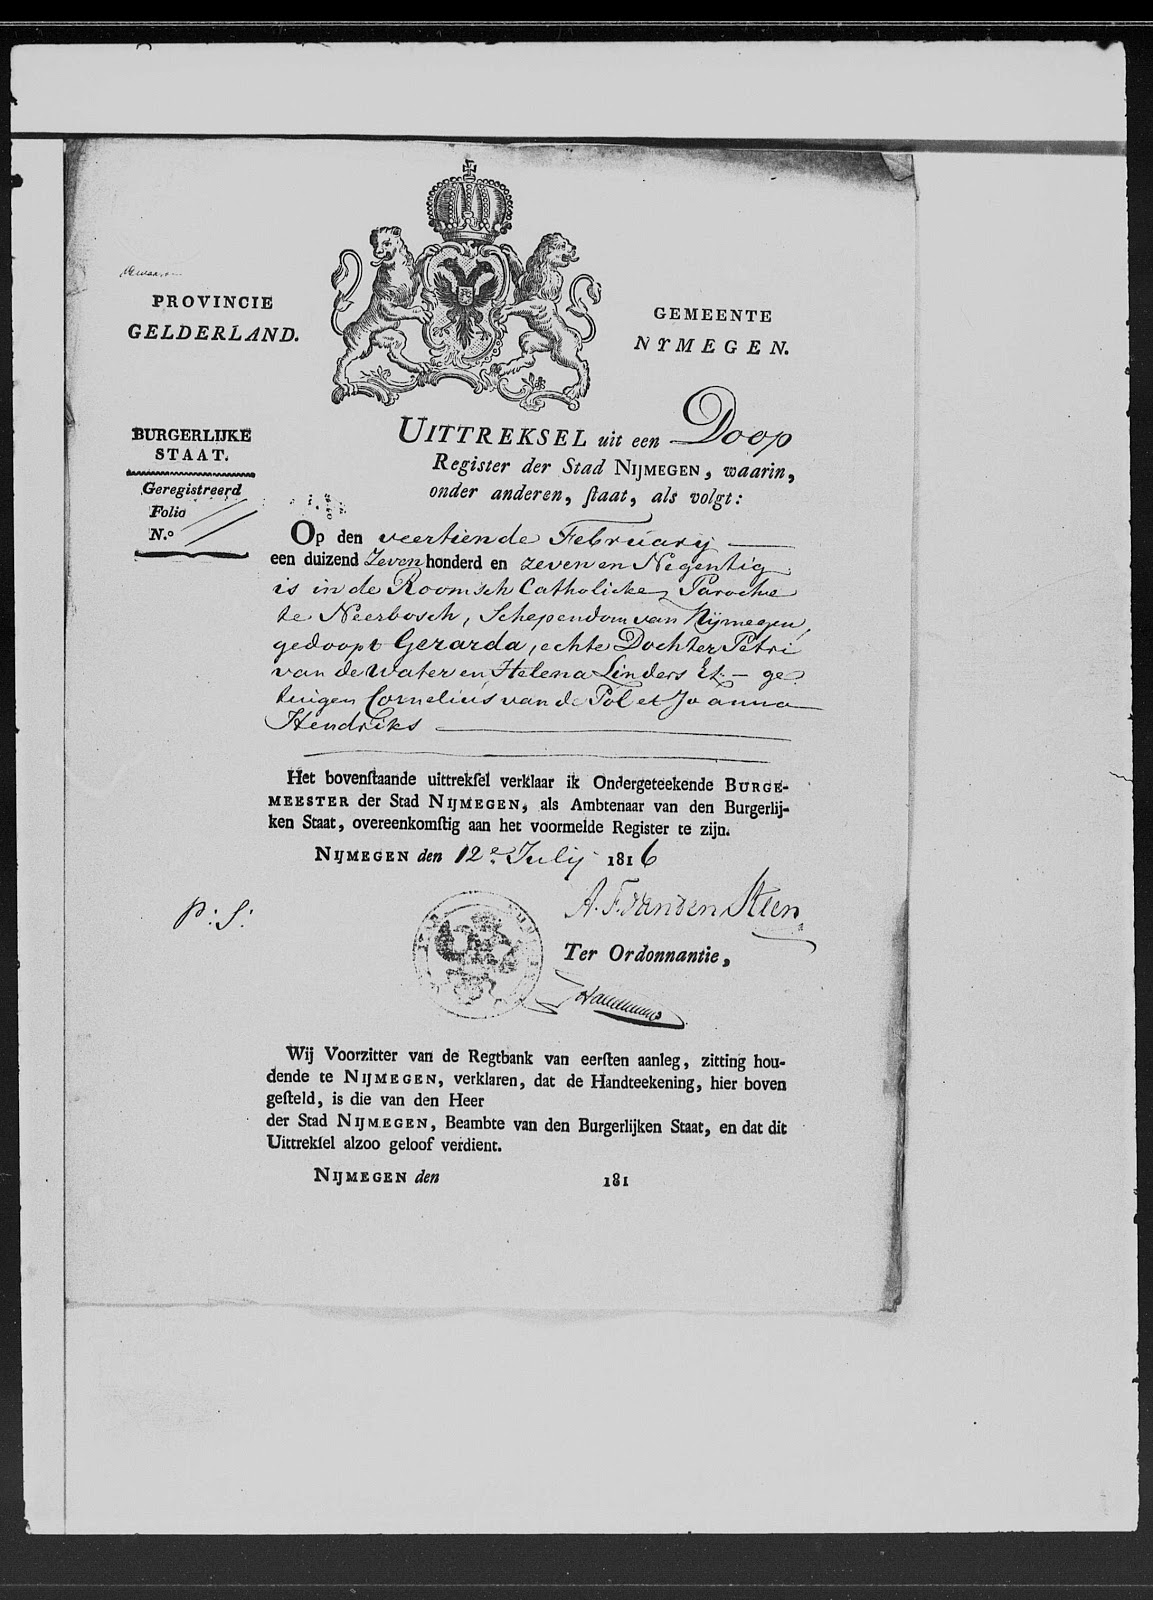 PROVINCIE
GELDERLAND.
GEMEENTE
NYMEGEN.
BURGERLIJKE
STAAT.
Geregistreerd
Folio
N.o
UITTREKSEL uit een Doop
Register der Stad NIJMEGEN, waarin,
onder anderen, staat, als volgt:
Op den veertiende February
een duizend Zeven honderd en zeven en Negentig
is in de Roomsch Catholicke Parochie
te Neerbosch, Schependom van Nijmegen,
gedoopt Gerarda, echte Dochter Petri
van de Water en Helena Linders Et. ge-
tuigen Cornelius van de Pol et Joanna
Hendriks
Het bovenstaande uittreksel verklaar ik Ondergeteekende BURGE-
MEESTER der Stad NIJMEGEN, als Ambtenaar van den Burgerlij-
ken Staat, overeenkomstig aan het voormelde Register te zijn.
NIJMEGEN den 12e. July 1816
A. F. van den Steen
p: S:
Ter Ordonnantie,
Wij Voorzitter van de Regtbank van eersten aanleg, zitting hou-
dende te NIJMEGEN, verklaren, dat de Handteekening, hier boven
gesteld, is die van den Heer
der Stad NIJMEGEN, Beambte van den Burgerlijken Staat, en dat dit
Uittreksel alzoo geloof verdient.
NIJMEGEN den 181